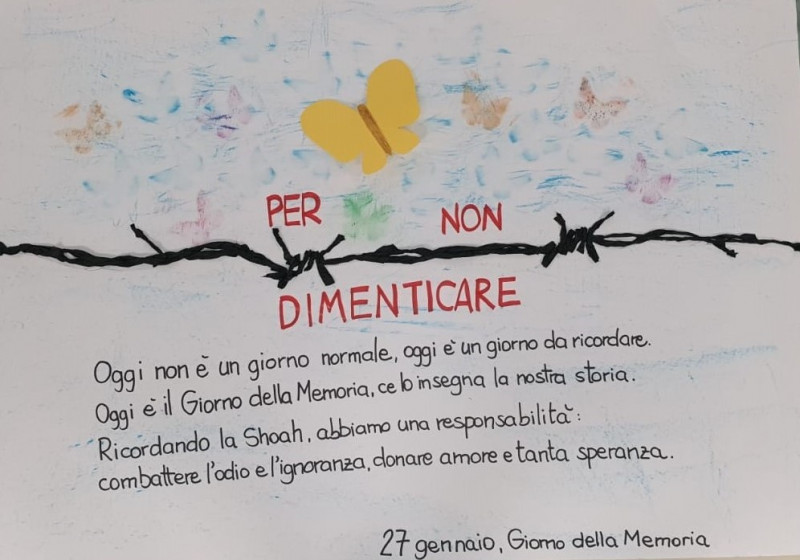 PER NON
DIMENTICARE
Oggi non è un giorno normale, oggi è un giorno da ricordare.
Oggi è il Giorno della Memoria, ce lo insegna la nostra storia.
Ricordando la Shoah, abbiamo una responsabilità:
combattere l'odio e l'ignoranza, donare amore e tanta speranza.
27 gennaio, Giorno della Memoria